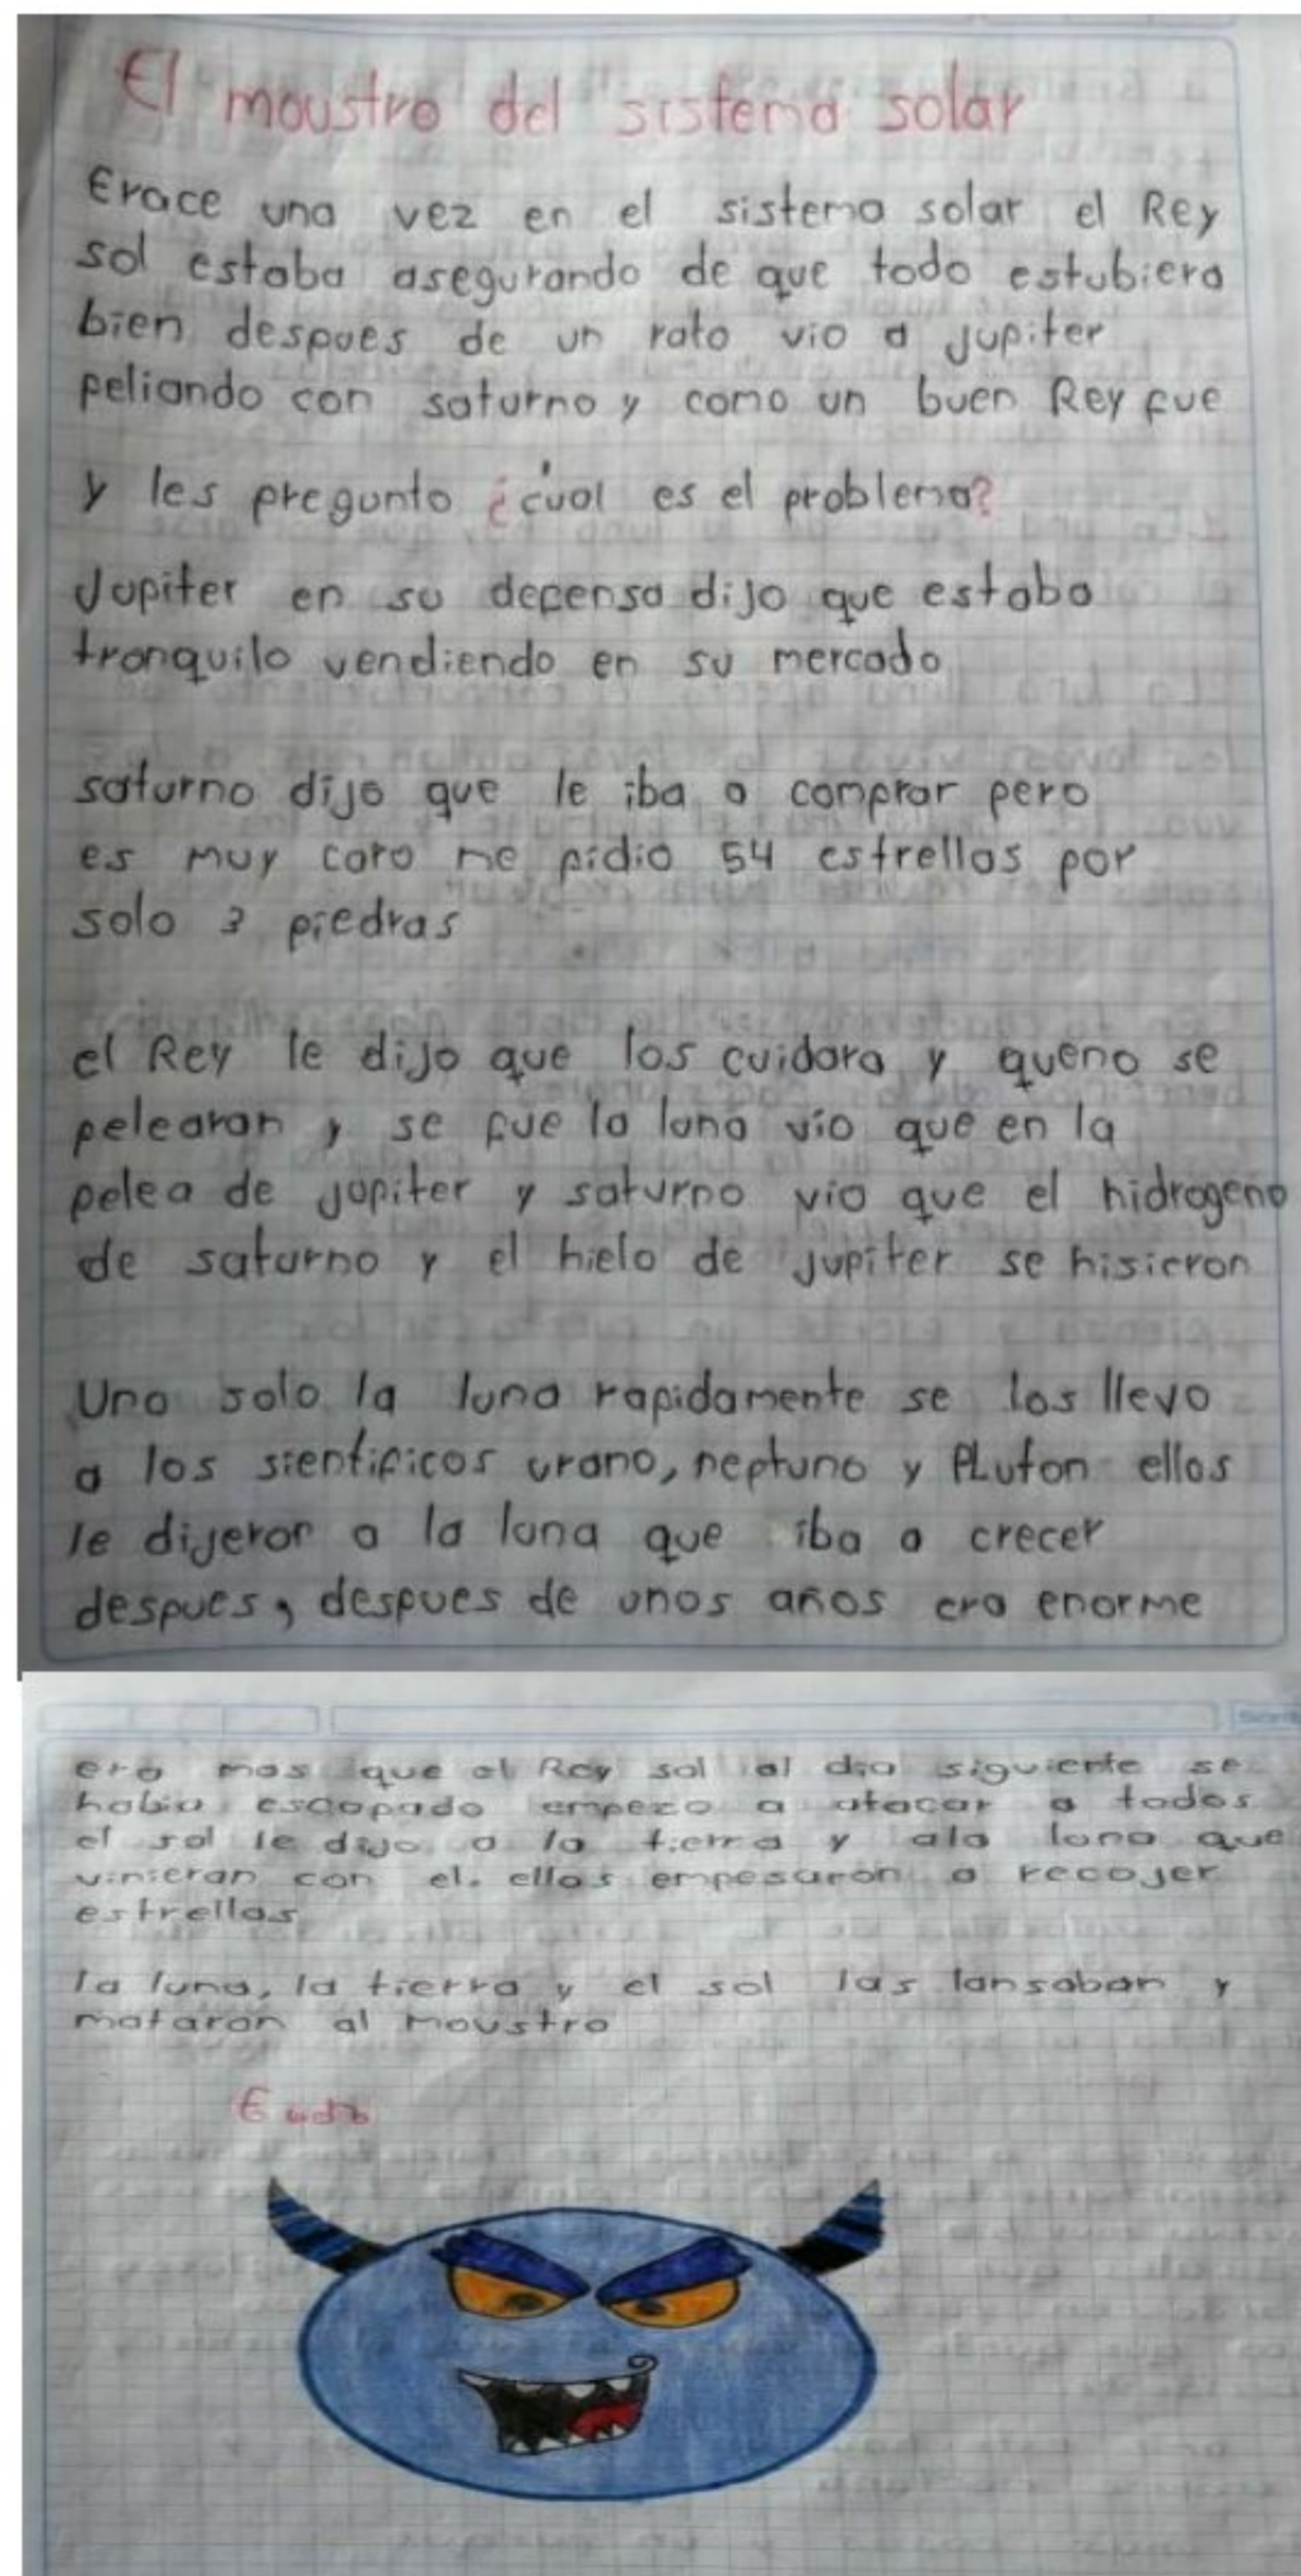 El moustro del sistema solar
Erace una vez en el sistema solar el Rey
sol estaba asegurando de que todo estubiera
bien despues de un rato vio a jupiter
peliando con saturno y como un buen Rey fue
y les pregunto ¿cual es el problema?
Jupiter en su defensa dijo que estaba
tranquilo vendiendo en su mercado
saturno dijo que le iba a comprar pero
es muy caro me pidio 54 estrellas por
solo 3 piedras
el Rey le dijo que los cuidara y queno se
pelearan y se fue la luna vio que en la
pelea de jupiter y saturno vio que el hidrogeno
de saturno y el hielo de jupiter se hisieron
Uno solo la luna rapidamente se los llevo
a los sientificos urano, neptuno y PLuton ellos
le dijeron a la luna que iba a crecer
despues, despues de unos años era enorme
era mas que el Rey sol al dia siguiente se
habia escapado empezo a atacar a todos
el sol le dijo a la tierra y ala luna que
vinieran con el. ellos empesaron a recojer
estrellas
la luna, la tierra y el sol las lansaban y
mataron al moustro